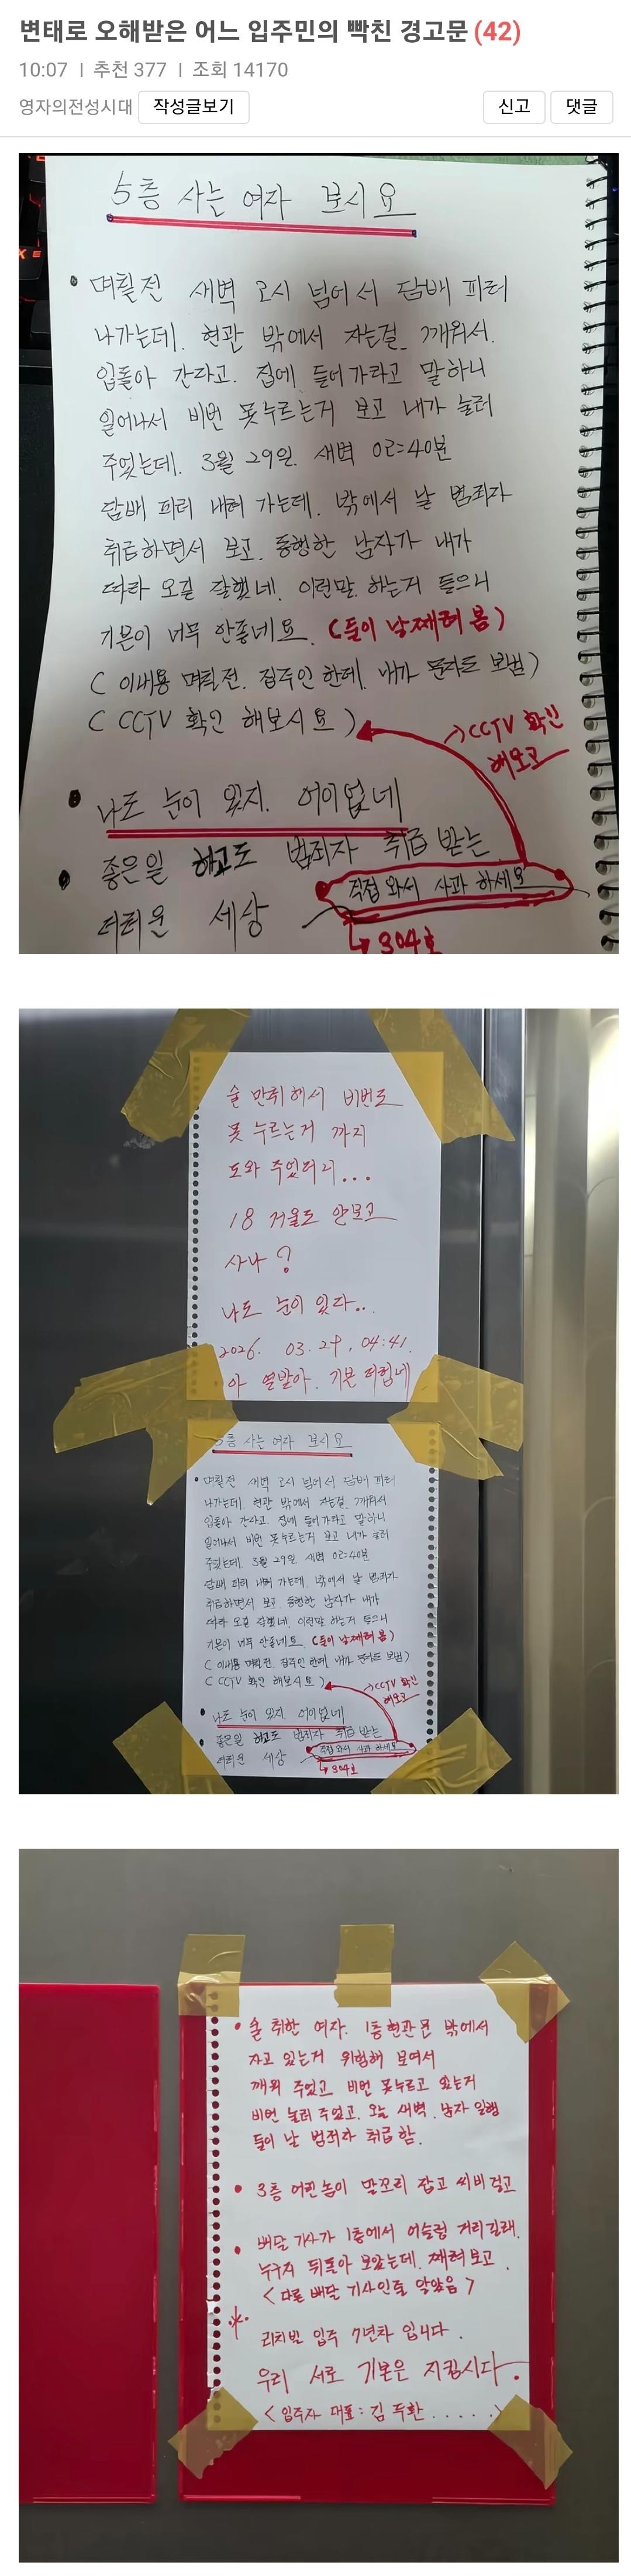 변태로 오해받은 어느 입주민의 빡친 경고문 (42)
10:07 | 추천 377 | 조회 14170
영자의전성시대 작성글보기 신고 댓글
5층 사는 여자 보시요
• 며칠전 새벽 2시 넘어서 담배 피러
나가는데. 현관 밖에서 자는걸 깨워서.
입돌아 간다고. 집에 들어가라고 말하니
일어나서 비번 못누르는거 보고 내가 눌러
주었는데. 3월 29일. 새벽 02:40분
담배 피러 내려 가는데. 밖에서 날 범죄자
취급하면서 보고. 동행한 남자가 내가
따라 오길 잘했네. 이런말. 하는거 들으니
기분이 너무 안좋네요. (둘이 날째려 봄)
( 이내용 며칠전. 집주인 한테. 내가 문자도 보냄)
( CCTV 확인 해보시요 )
→ CCTV 확인
해보고
• 나도 눈이 있지. 어이없네
• 좋은일 하고도 범죄자 취급 받는
더러운 세상
직접 와서 사과 하세요
↳ 304호
술 만취해서 비번도
못 누르는거 까지
도와 주었더니...
18 거울도 안보고
사나?
나도 눈이 있다..
2026. 03. 29. 04:41.
아 열받아. 기분 더럽네
5층 사는 여자 보시요
• 며칠전 새벽 2시 넘어서 담배 피러
나가는데. 현관 밖에서 자는걸 깨워서
입돌아 간다고. 집에 들어가라고 말하니
일어나서 비번 못누르는거 보고 내가 눌러
주었는데. 3월 29일. 새벽 02:40분
담배 피러 내려 가는데. 밖에서 날 범죄자
취급하면서 보고. 동행한 남자가 내가
따라 오길 잘했네. 이런말 하는거 들으니
기분이 너무 안좋네요. (둘이 날째려 봄)
( 이내용 며칠전. 집주인 한테. 내가 문자도 보냄)
( CCTV 확인 해보시요 )
→ CCTV 확인
해보고
• 나도 눈이 있지. 어이없네
• 좋은일 하고도 범죄자 취급 받는
더러운 세상
직접 와서 사과 하세요
↳ 304호
• 술 취한 여자. 1층 현관문 밖에서
자고 있는거 위험해 보여서
깨워 주었고 비번 못누르고 있는거
비번 눌러 주었고. 오늘 새벽. 남자 일행
들이 날 범죄자 취급 함.
• 3층 어린놈이 말꼬리 잡고 씨비 걸고
• 배달 기사가 1층에서 어슬렁 거리길래.
누구지 뒤돌아 보았는데. 째려보고.
< 다른 배달 기사인줄 알았음 >
* 리치빌 입주 7년차 입니다.
우리 서로 기본은 지킵시다.
< 입주자 대표 : 김두환 ..... >